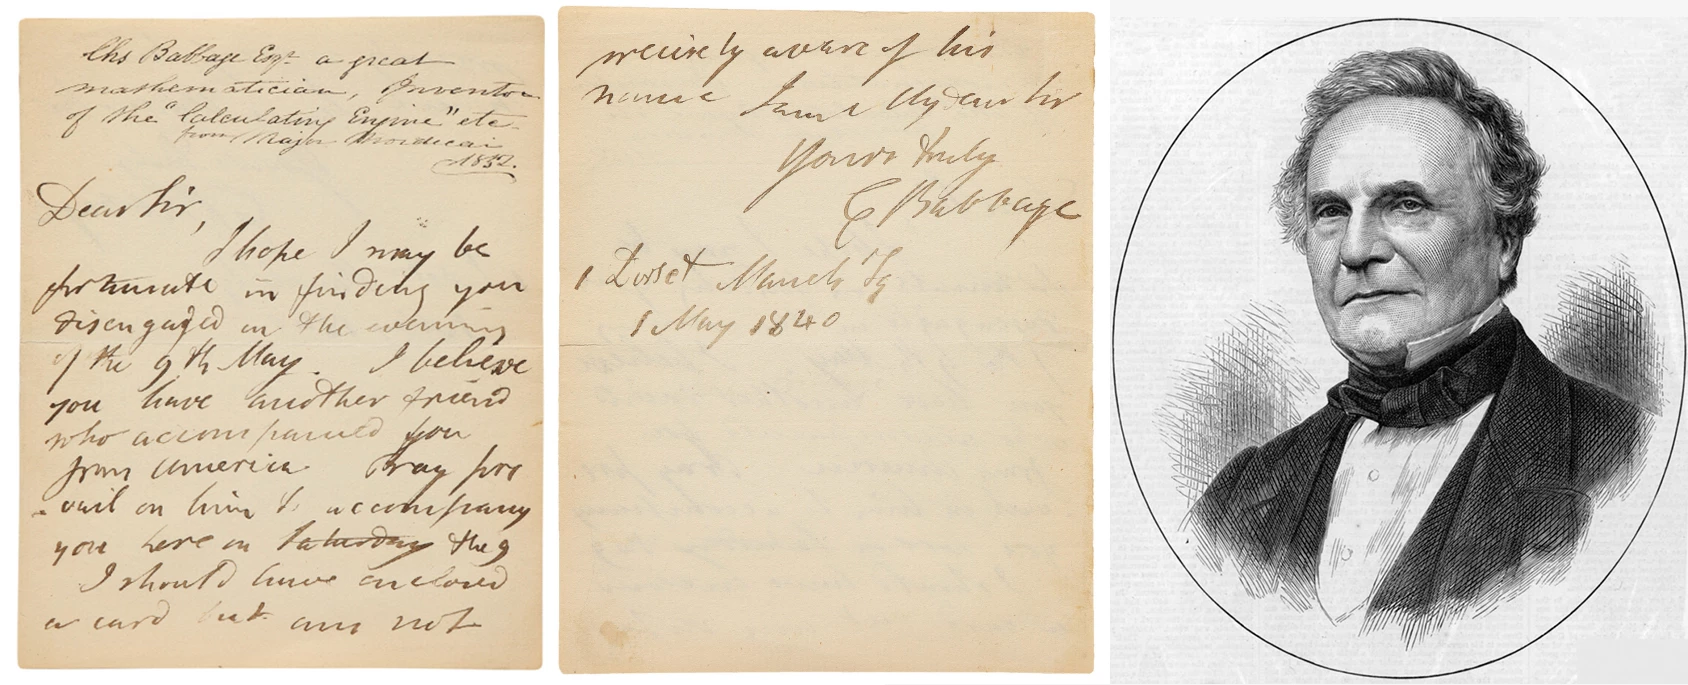 Chs Babbage Esqr. a great
mathematician, Inventor
of the "Calculating Engine" etc.
from Major Mordecai
1852.
Dear Sir,
I hope I may be
fortunate in finding you
disengaged on the evening
of the 9th May. I believe
you have another friend
who accompanied you
from America Pray pre
-vail on him to accompany
you here on Saturday the 9
I should have enclosed
a card but am not
precisely aware of his
name I am My dear Sir
Yours truly
C Babbage
1 Dorset Manch Sq
1 May 1840